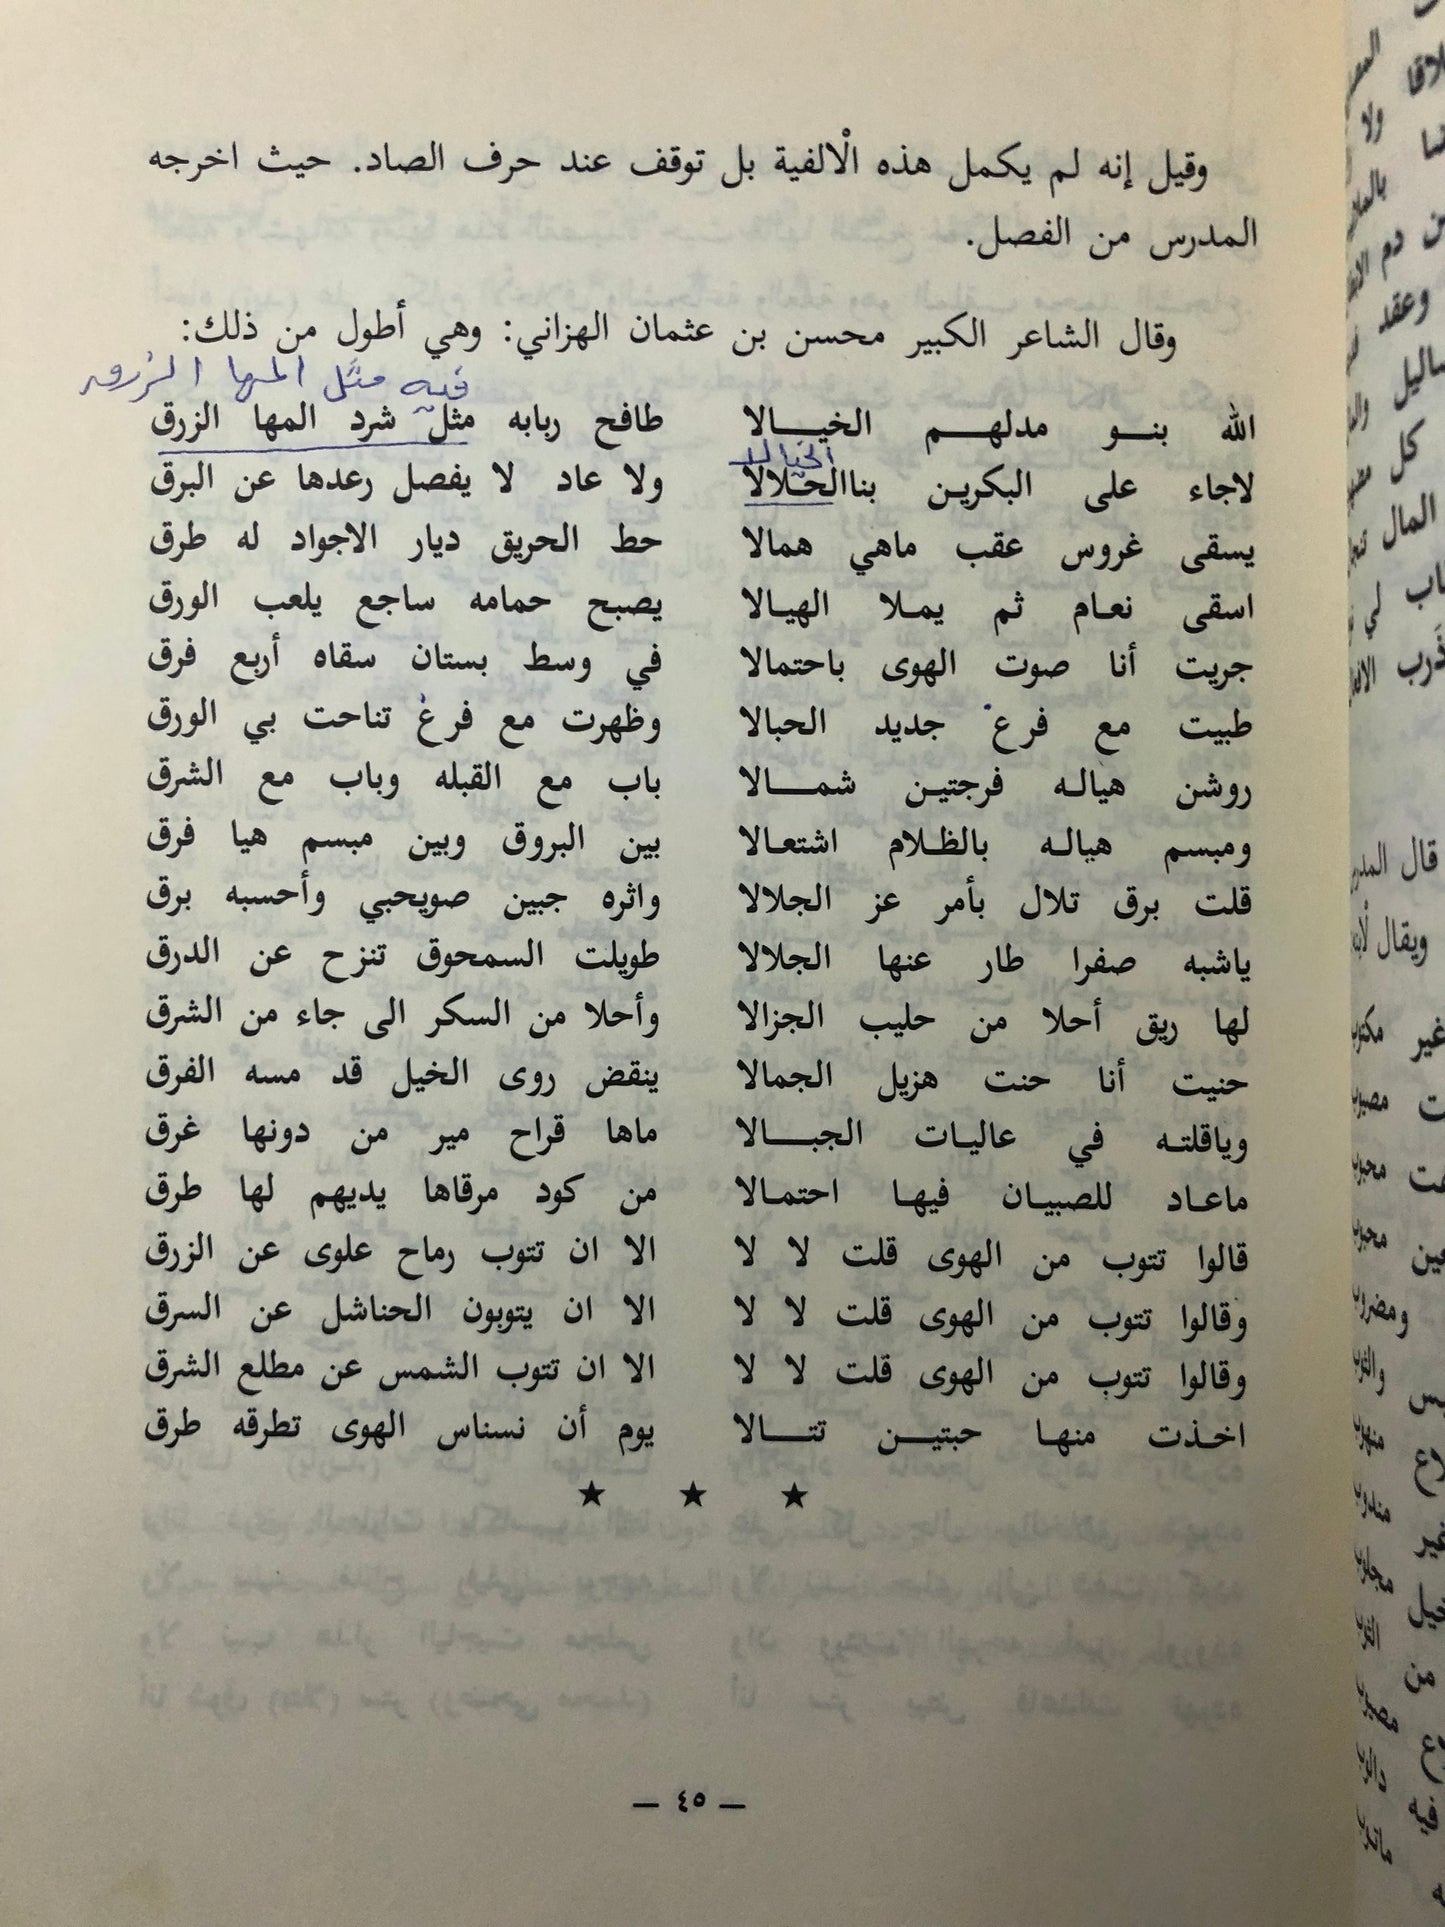 وقيل إنه لم يكمل هذه الْالفية بل توقف عند حرف الصاد. حيث اخرجه
المدرس من الفصل.
وقال الشاعر الكبير محسن بن عثمان الهزاني: وهي أطول من ذلك:
فيه مثل المها الزرق
الله بنـو مدلهـم الخيـالا طافح ربابه مثل شرد المها الزرق
الخيالا
لاجاء على البكرين بناالحلالا ولا عاد لا يفصل رعدها عن البرق
يسقى غروس عقب ماهي همالا حط الحريق ديار الاجواد له طرق
اسقى نعام ثم يملا الهيالا يصبح حمامه ساجع يلعب الورق
جريت أنا صوت الهوى باحتمالا في وسط بستان سقاه أربع فرق
طبيت مع فرع جديد الحبالا وظهرت مع فرغ تناحت بي الورق
روشن هياله فرجتين شمـالا باب مع القبله وباب مع الشرق
ومبسم هياله بالظلام اشتعالا بين البروق وبين مبسم هيا فرق
قلت برق تلال بأمر عز الجلالا واثره جبين صويحبي وأحسبه برق
ياشبه صفرا طار عنها الجلالا طويلت السمحوق تنزح عن الدرق
لها ريق أحلا من حليب الجزالا وأحلا من السكر الى جاء من الشرق
حنيت أنا حنت هزيل الجمالا ينقض روى الخيل قد مسه الفرق
وياقلتـه في عاليات الجبـالا ماها قراح مير من دونها غرق
ماعاد للصبيان فيها احتمالا من كود مرقاها يديهم لها طرق
قالوا تتوب من الهوى قلت لا لا الا ان تتوب رماح علوى عن الزرق
وقالوا تتوب من الهوى قلت لا لا الا ان يتوبون الحناشل عن السرق
وقالوا تتوب من الهوى قلت لا لا الا ان تتوب الشمس عن مطلع الشرق
اخـذت منها حبتيـن تتـالا يوم أن نسناس الهوى تطرقه طرق
★ ★ ★
— ٤٥ —